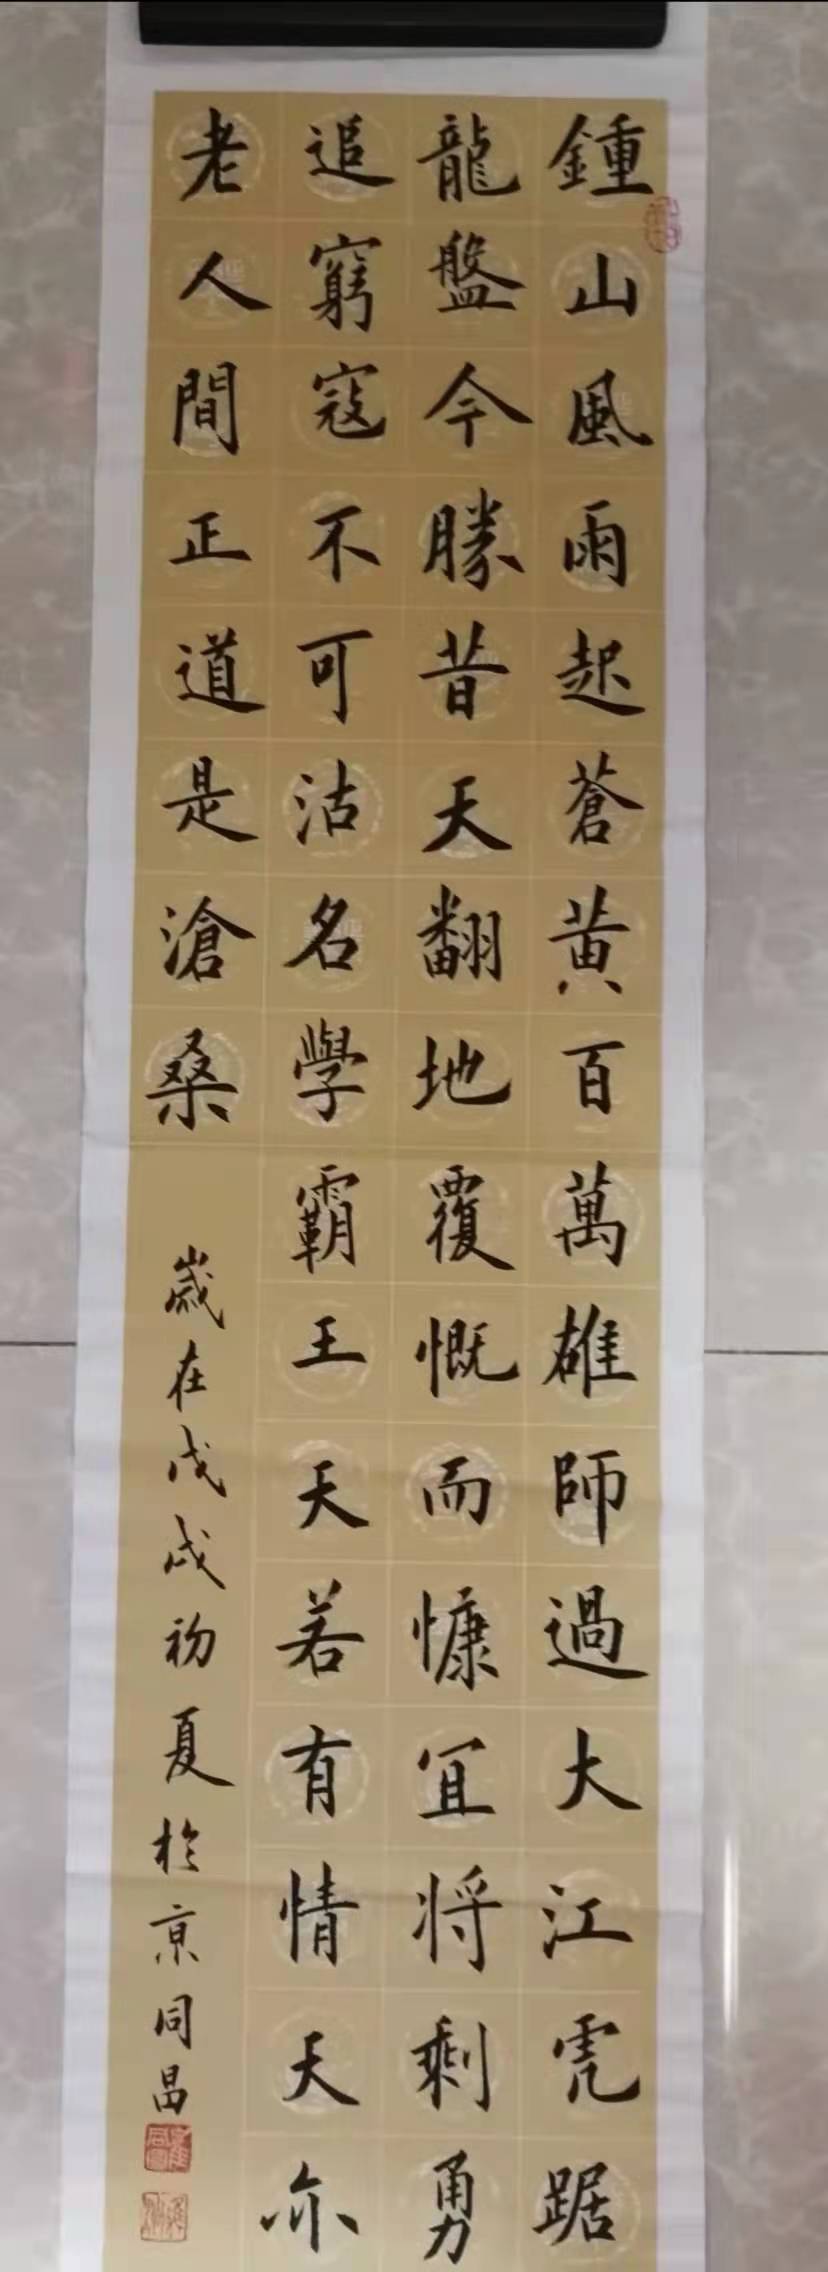 鍾山風雨起蒼黃百萬雄師過大江虎踞
龍盤今勝昔天翻地覆慨而慷宜將剩勇
追窮寇不可沽名學霸王天若有情天亦
老人間正道是滄桑
歲在戊戌初夏於京同昌